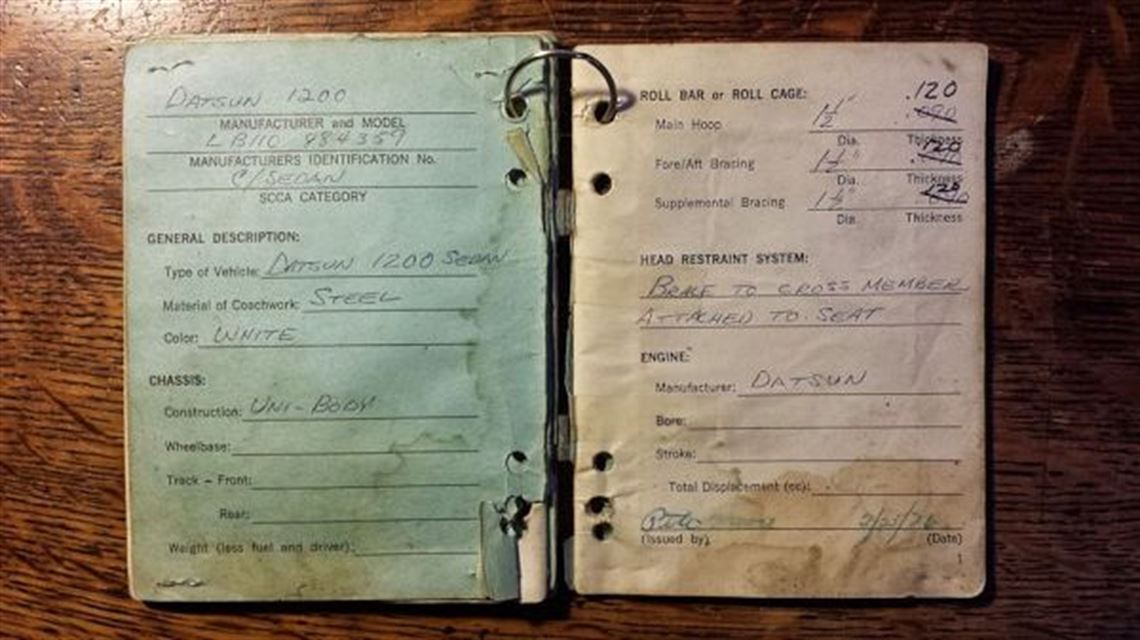 DATSUN 1200
MANUFACTURER and MODEL
LB110 984359
MANUFACTURERS IDENTIFICATION No.
C/SEDAN
SCCA CATEGORY
GENERAL DESCRIPTION:
Type of Vehicle: DATSUN 1200 SEDAN
Material of Coachwork: STEEL
Color: WHITE
CHASSIS:
Construction: UNI-BODY
Wheelbase:
Track - Front:
Rear:
Weight (less fuel and driver):
ROLL BAR or ROLL CAGE: .120
Main Hoop 1½" .090
Dia. Thickness
Fore/Aft Bracing 1½" .120
Dia. Thickness
Supplemental Bracing 1½" .120
Dia. Thickness
HEAD RESTRAINT SYSTEM:
BRACE TO CROSS MEMBER
ATTACHED TO SEAT
ENGINE:
Manufacturer: DATSUN
Bore:
Stroke:
Total Displacement (cc):
(Issued by) (Date)
1